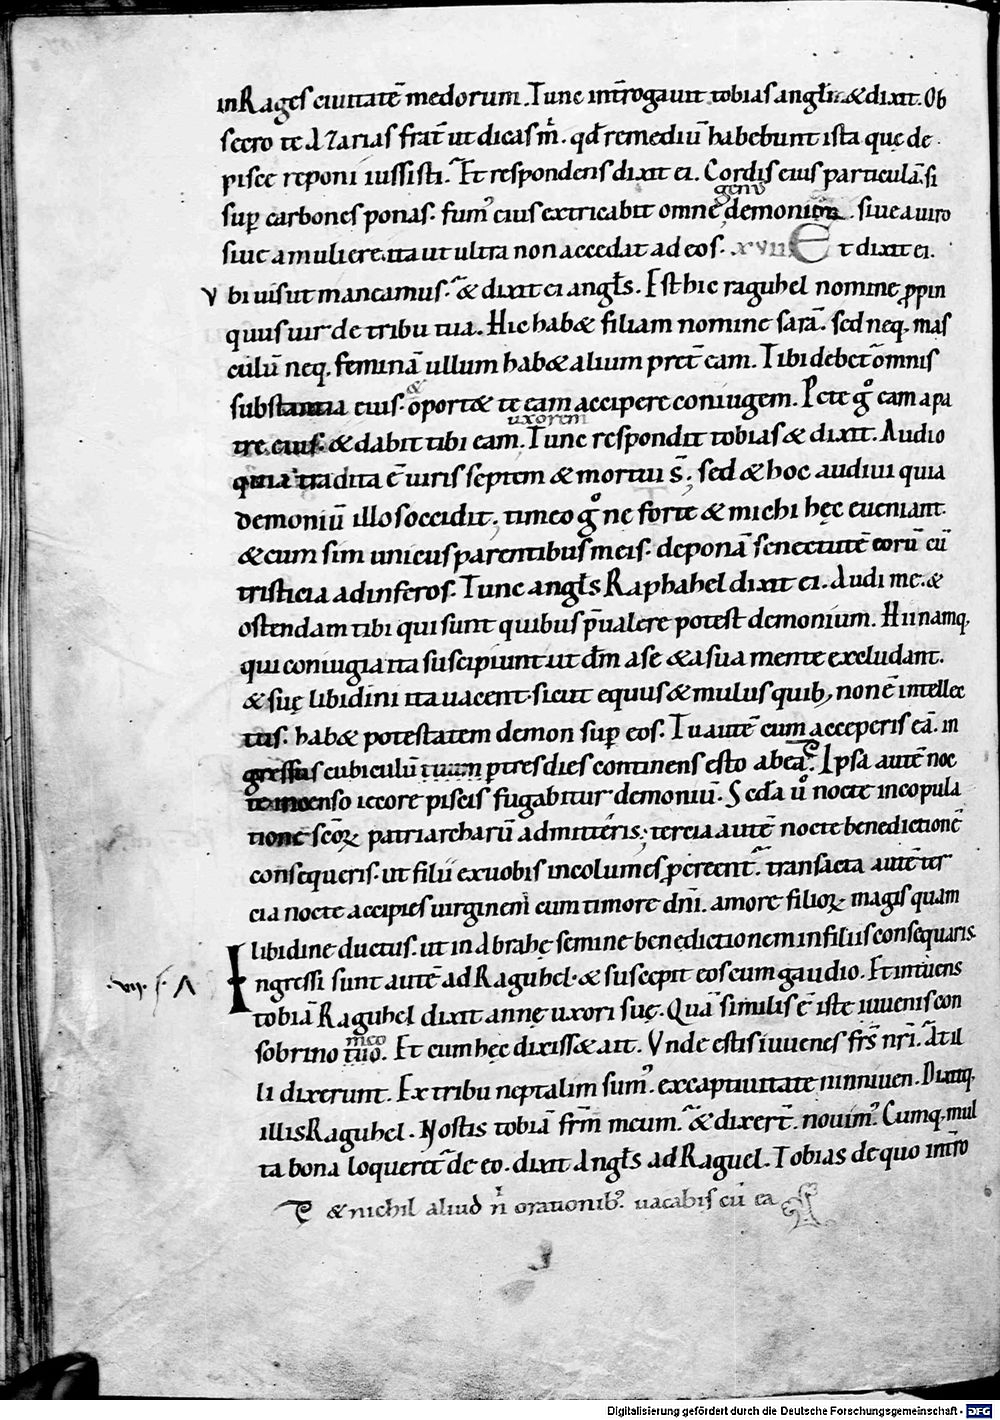 inRages ciuitatē medorum. Tunc int̄rogauit tobias angłm &dixit. Ob
secro te Azarias frat̄ ut dicas m̄. qd̄ remediū habebunt ista quę de
pisce reponi iussisti. Et respondens dixit ei. Cordis eius particulā. si
suꝑ carbones ponas. fumꝰ eius extricabit omne demoniorum siue a uiro
genꝰ
siue a muliere. ita ut ultra non accedat ad eos. xvii Et dixit ei.
Vbi uis ut maneamus. & dixit ei angłs. Est hic raguhel nomine ꝓpin
quus uir de tribu tua. Hic hab& filiam nomine sarā. sed neq. mas
culū neq. feminā ullum hab& alium pret̄ eam. Tibi debet omnis
substantia eius. oport& te eam accipere coniugem. Pete gͦ eam a pa
&
tre eius. & dabit tibi eam. Tunc respondit tobias & dixit. Audio
uxorem
quia tradita ē uiris septem & mortui s̄. sed & hoc audiui quia
demoniū illos occidit. timeo gͦ ne forte & michi hęc eueniant.
& cum sim unicus parentibus meis. deponā senectutē eorū cū
tristicia ad inferos. Tunc angłs Raphahel dixit ei. Audi me. &
ostendam tibi qui sunt quibus p̄ualere potest demonium. Hi namq.
qui coniugia ita suscipiunt ut dm̄ a se & a sua mente excludant.
& suę libidini ita uacent. sicut equus & mulus quib; non ē intellec
tus. hab& potestatem demon suꝑ eos. Tu autē cum acceperis eā. in
gressus cubiculū tuum ꝑ tres dies continens esto ab ea. Ipsa autē noc
te incenso iecore piscis fugabitur demoniū. Scd̄a uͦ nocte in copula
tione scōꝝ patriarcharū admitteris; tercia autē nocte benedictionē
consequeris. ut filii ex uobis incolumes ꝓcreent. transacta autē ter
cia nocte accipies uirginem cum timore dn̄i. amore filioꝝ magis quam
libidine ductus. ut in Abrahę semine benedictionem in filiis consequaris.
.vii. Ingressi sunt autē ad Raguhel. & suscepit eos cum gaudio. Et intuens
tobiā Raguhel dixit annę uxori suę. Quā similis ē iste iuuenis con
sobrino tuo. Et cum hęc dixiss& ait. Vnde estis iuuenes frs̄ nr̄i. At il
meo
li dixerunt. Ex tribu neptalim sumꝰ. ex captiuitate niniuen. Dixitq.
illis Raguhel. Nostis tobiā frm̄ meum. & dixert̄. nouimꝰ. Cumq. mul
ta bona loqueret̄ de eo. dixit Angłs ad Raguel. Tobias de quo int̄ro
& nichil aliud n̄ orationibꝰ. uacabis cū ea
Digitalisierung gefördert durch die Deutsche Forschungsgemeinschaft - DFG